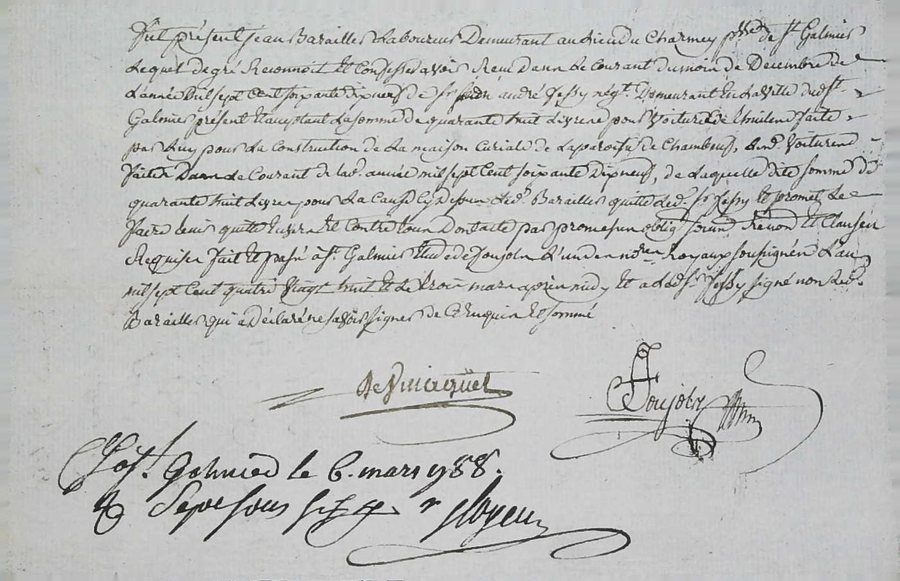 Fut présent Jean Barailler Laboureur Demeurant au Lieu du Charmey psse de St. Galmier
Lequel de gré Reconnoit Et Confesse avoir Reçu Dans Le Courant du mois de Decembre de
L'année Mil sept Cent soixante dix neuf de Sr. andré Jessy Négt. Demeurant En La ville de St.
Galmier présent Et acceptant La somme de quarante huit Livres pour voitures faites
par Luy pour La Construction de La maison Curiale de La paroisse de Chambeuf, voitures
faites Dans Le Courant de lad. année mil sept Cent soixante dix neuf, de Laquelle dite somme de
quarante huit Livres pour La Cause Cy Dessus Led. Barailler quitte Led. Sr. Jessy Et promet Le
faire tenir quitte Envers Et Contre tous Dont acte par promesses oblig. soum. Renon. Et Clauses
Requises fait Et passé à St. Galmier Etude de Poujols L'un des nres. Royaux soussignés L'an
mil sept Cent quatre vingt huit Et Le trois mars après midy Et a Led. Sr. Jessy signé non Led.
Barailler qui a Déclaré ne savoir signer de Ce Enquis Et sommé
Poujols
Galmier le 6. mars 1788.